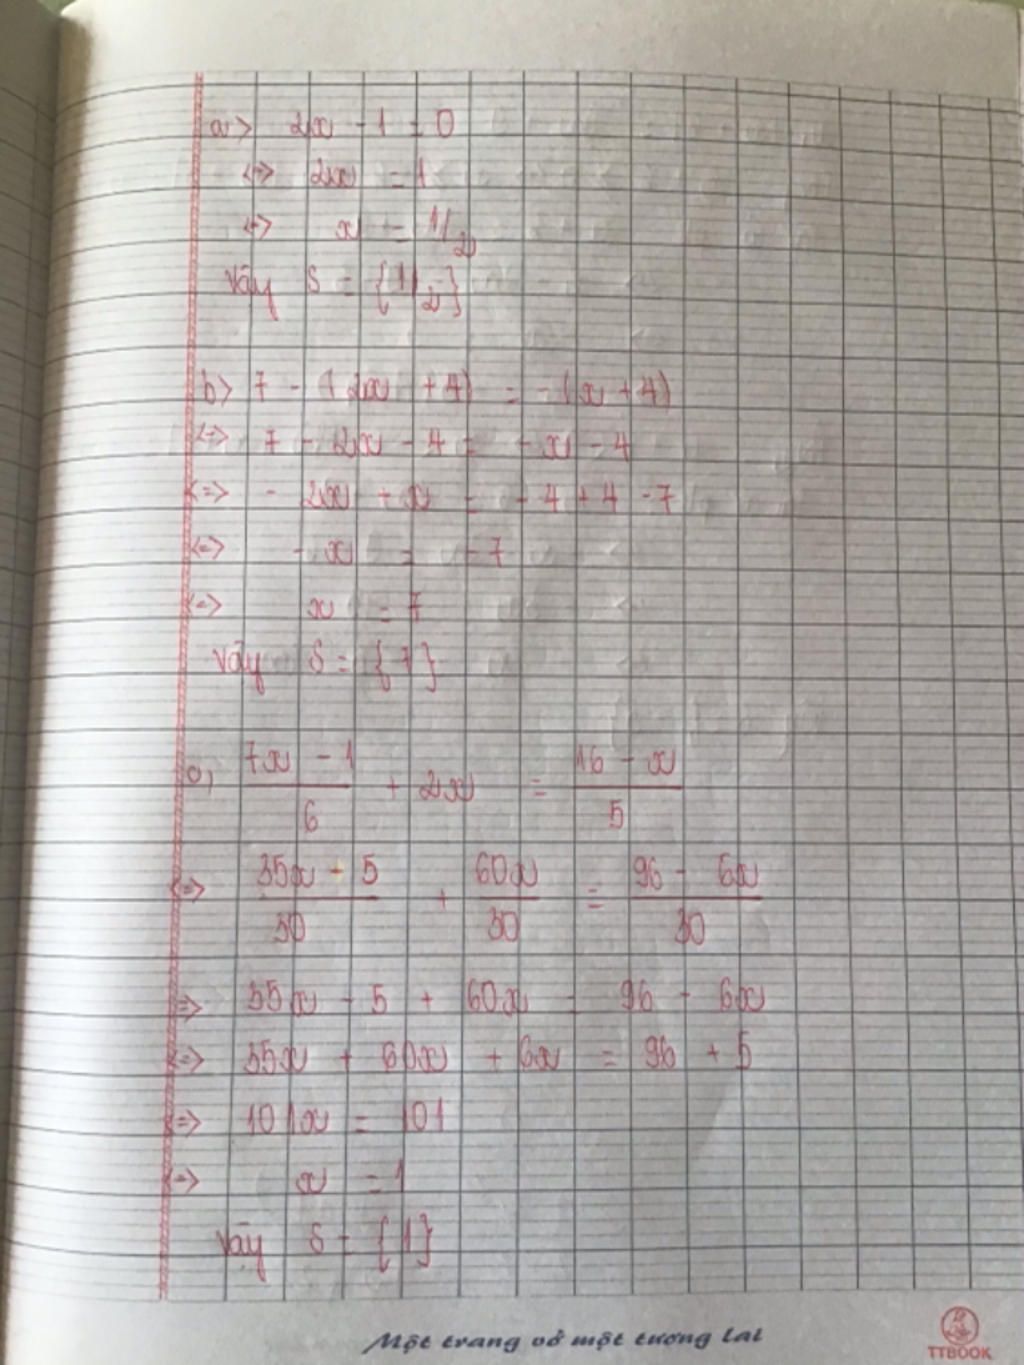 a> 2x - 1 = 0
<=> 2x = 1
<=> x = 1/2
Vậy S = {1/2}
b> 7 - (2x + 4) = -(x + 4)
<=> 7 - 2x - 4 = - x - 4
<=> - 2x + x = - 4 + 4 - 7
<=> - x = - 7
<=> x = 7
Vậy S = {7}
c, (7x - 1)/6 + 2x = (16 - x)/5
<=> (35x - 5)/30 + 60x/30 = (96 - 6x)/30
=> 35x - 5 + 60x = 96 - 6x
<=> 35x + 60x + 6x = 96 + 5
<=> 101x = 101
<=> x = 1
Vậy S = {1}
Một trang vở một tương lai
TTBOOK